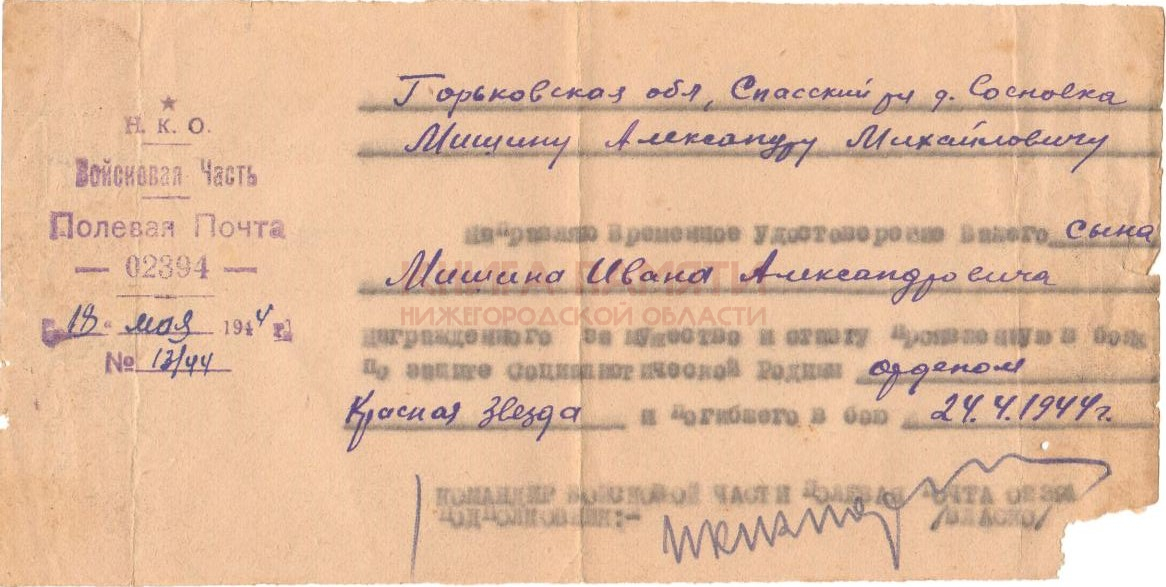 Н. К. О.
Войсковая Часть
Полевая Почта
— 02394 —
"18" мая 1944 г.
№ 13/44
Горьковская обл, Спасский рн д. Сосновка
Мишину Александру Михайловичу
Направляю Временное удостоверение Вашего сына
Мишина Ивана Александровича
КНИГА ПАМЯТИ
НИЖЕГОРОДСКОЙ ОБЛАСТИ
награжденного за мужество и отвагу проявленную в боях
по защите Социалистической Родины орденом
Красная Звезда и погибшего в бою 24.4.1944г.
КОМАНДИР ВОЙСКОВОЙ ЧАСТИ ПОЛЕВАЯ ПОЧТА 02394
ПОДПОЛКОВНИК:- /ВЛАСКО/